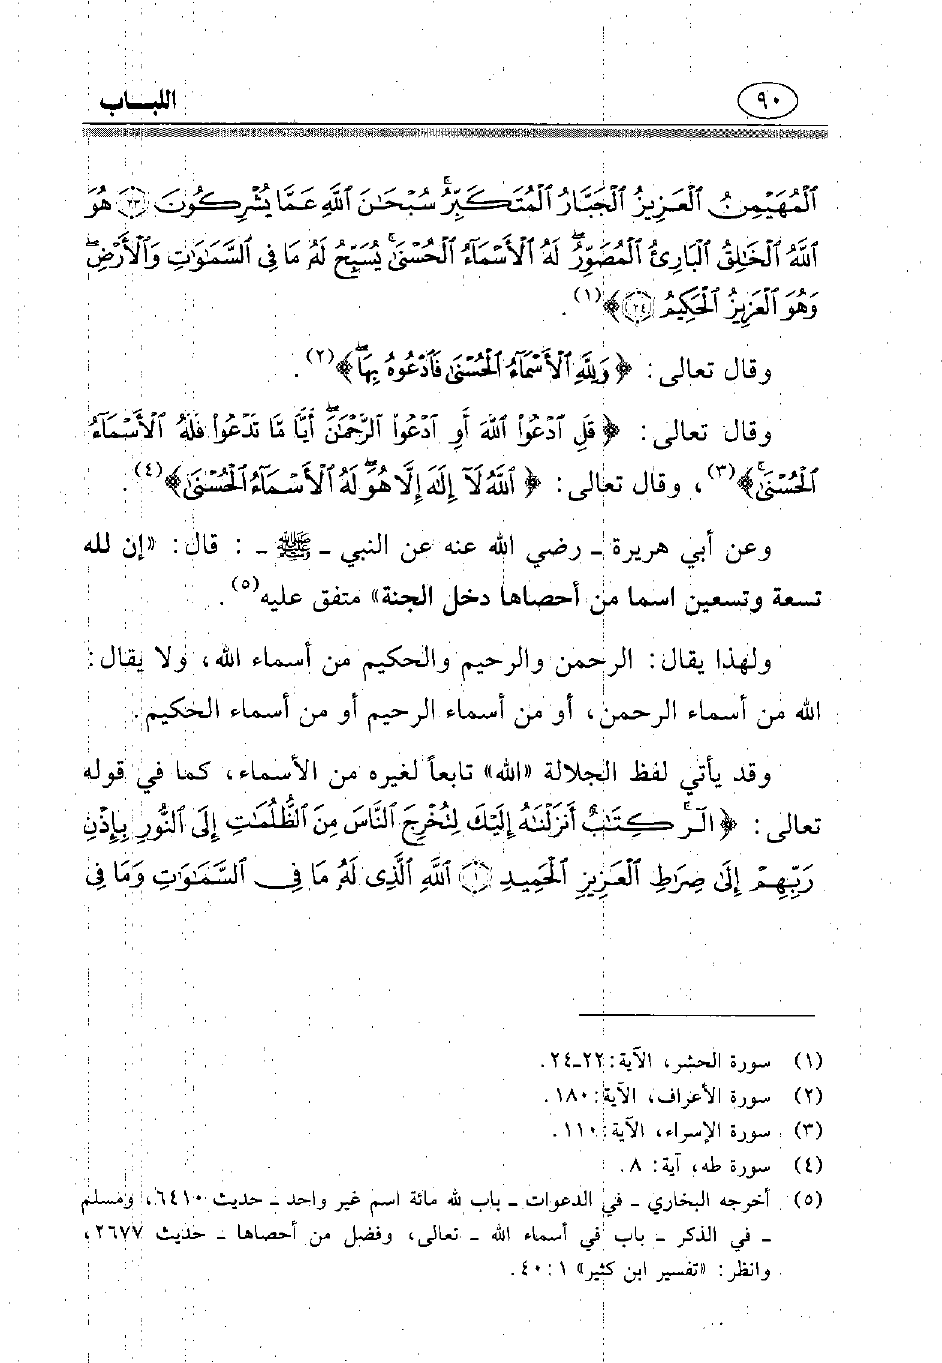 ٩٠ اللبـاب
ٱلْمُهَيْمِنُ ٱلْعَزِيزُ ٱلْجَبَّارُ ٱلْمُتَكَبِّرُۚ سُبْحَٰنَ ٱللَّهِ عَمَّا يُشْرِكُونَ ﴿٢٣﴾ هُوَ
ٱللَّهُ ٱلْخَٰلِقُ ٱلْبَارِئُ ٱلْمُصَوِّرُۖ لَهُ ٱلْأَسْمَآءُ ٱلْحُسْنَىٰۚ يُسَبِّحُ لَهُۥ مَا فِى ٱلسَّمَٰوَٰتِ وَٱلْأَرْضِۖ
وَهُوَ ٱلْعَزِيزُ ٱلْحَكِيمُ ﴿٢٤﴾﴾(١).
وقال تعالى: ﴿وَلِلَّهِ ٱلْأَسْمَآءُ ٱلْحُسْنَىٰ فَٱدْعُوهُ بِهَاۖ﴾(٢).
وقال تعالى: ﴿قُلِ ٱدْعُوا۟ ٱللَّهَ أَوِ ٱدْعُوا۟ ٱلرَّحْمَٰنَۖ أَيًّا مَّا تَدْعُوا۟ فَلَهُ ٱلْأَسْمَآءُ
ٱلْحُسْنَىٰۚ﴾(٣)، وقال تعالى: ﴿ٱللَّهُ لَآ إِلَٰهَ إِلَّا هُوَۖ لَهُ ٱلْأَسْمَآءُ ٱلْحُسْنَىٰ﴾(٤).
وعن أبي هريرة ـ رضي الله عنه عن النبي ـ ﷺ ـ : قال: «إن لله
تسعة وتسعين اسما من أحصاها دخل الجنة» متفق عليه(٥).
ولهذا يقال: الرحمن والرحيم والحكيم من أسماء الله، ولا يقال:
الله من أسماء الرحمن، أو من أسماء الرحيم أو من أسماء الحكيم.
وقد يأتي لفظ الجلالة «الله» تابعاً لغيره من الأسماء، كما في قوله
تعالى: ﴿الٓرۚ كِتَٰبٌ أَنزَلْنَٰهُ إِلَيْكَ لِتُخْرِجَ ٱلنَّاسَ مِنَ ٱلظُّلُمَٰتِ إِلَى ٱلنُّورِ بِإِذْنِ
رَبِّهِمْ إِلَىٰ صِرَٰطِ ٱلْعَزِيزِ ٱلْحَمِيدِ ﴿١﴾ ٱللَّهِ ٱلَّذِى لَهُۥ مَا فِى ٱلسَّمَٰوَٰتِ وَمَا فِى
(١) سورة الحشر، الآية: ٢٢ـ٢٤.
(٢) سورة الأعراف، الآية: ١٨٠.
(٣) سورة الإسراء، الآية: ١١٠.
(٤) سورة طه، آية: ٨.
(٥) أخرجه البخاري ـ في الدعوات ـ باب لله مائة اسم غير واحد ـ حديث ٦٤١٠، ومسلم
ـ في الذكر ـ باب في أسماء الله ـ تعالى، وفضل من أحصاها ـ حديث ٢٦٧٧،
وانظر: «تفسير ابن كثير» ١: ٤٠.